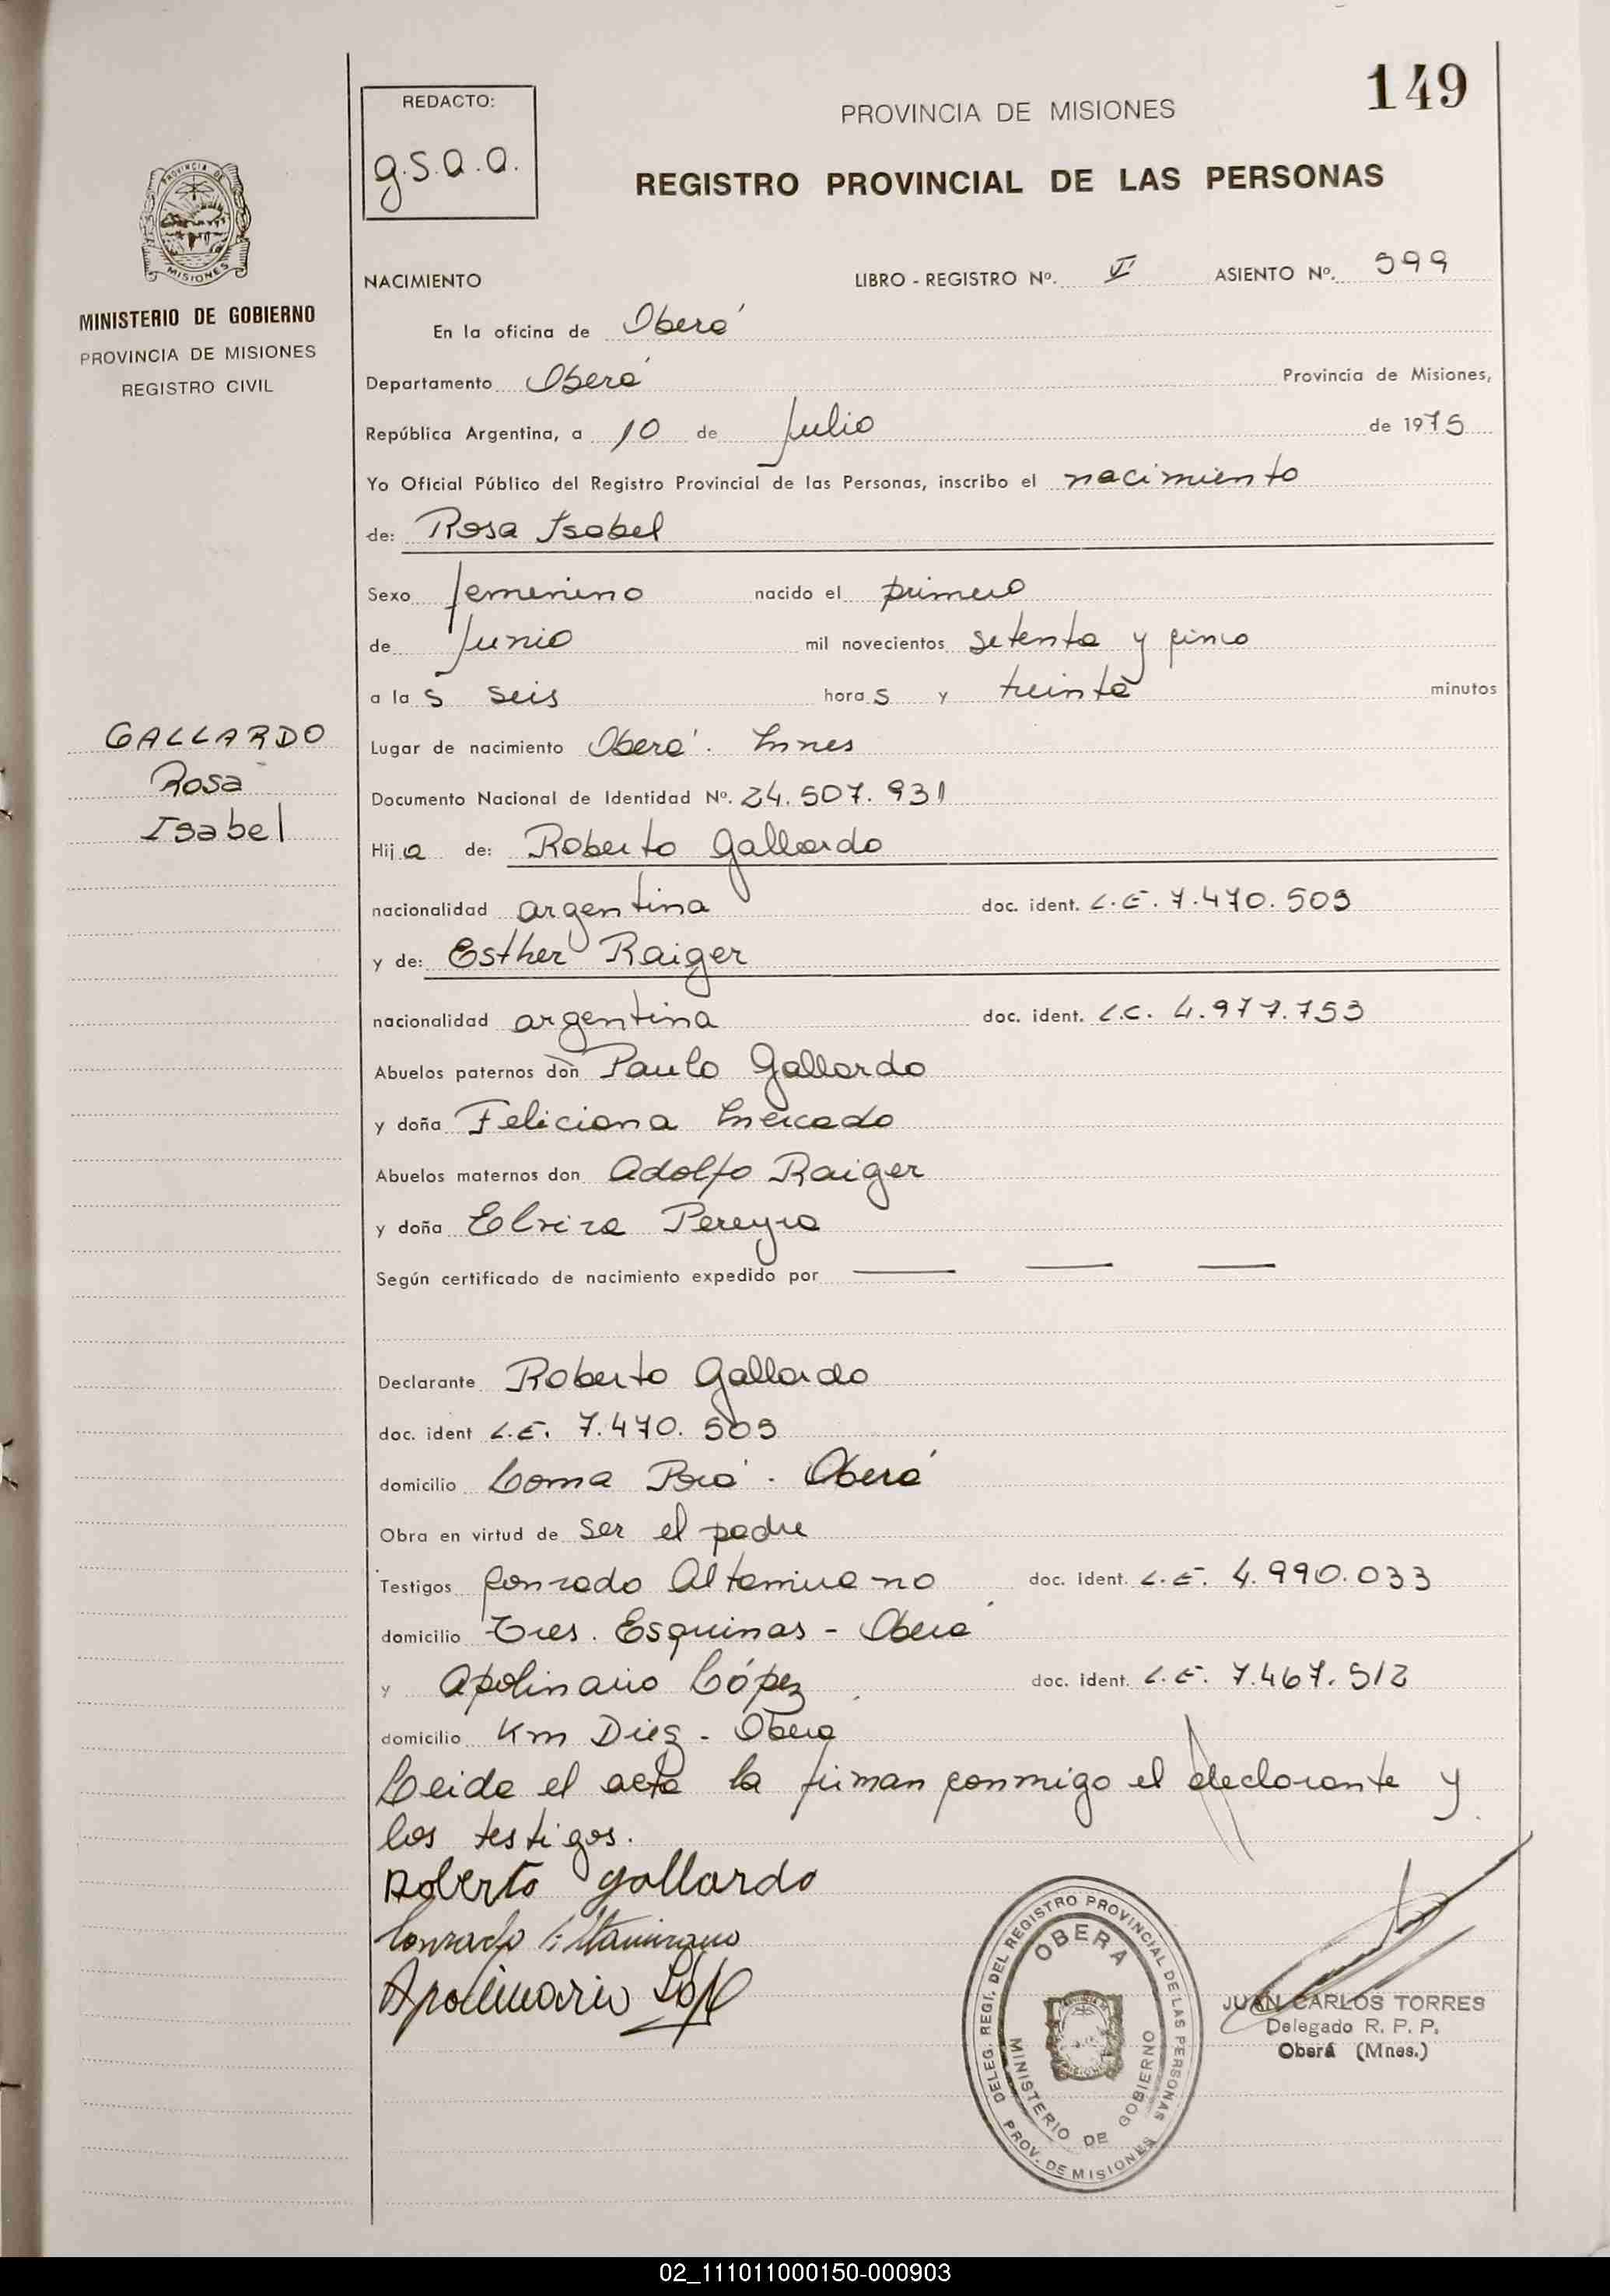 149
REDACTO:
g.s.a.a.
PROVINCIA DE MISIONES
REGISTRO PROVINCIAL DE LAS PERSONAS
PROVINCIA DE
MISIONES
MINISTERIO DE GOBIERNO
PROVINCIA DE MISIONES
REGISTRO CIVIL
NACIMIENTO LIBRO - REGISTRO Nº. VI ASIENTO Nº. 599
En la oficina de Oberá
Departamento Oberá Provincia de Misiones,
República Argentina, a 10 de Julio de 1975
Yo Oficial Público del Registro Provincial de las Personas, inscribo el nacimiento
de: Rosa Isabel
Sexo femenino nacido el primero
de Junio mil novecientos setenta y cinco
a la s seis hora s y treinta minutos
GALLARDO
Rosa
Isabel
Lugar de nacimiento Oberá. Mnes
Documento Nacional de Identidad Nº. 24.507.931
Hij a de: Roberto Gallardo
nacionalidad argentina doc. ident. L.E. 7.470.509
y de: Esther Raiger
nacionalidad argentina doc. ident. L.C. 4.977.753
Abuelos paternos don Paulo Gallardo
y doña Feliciana Mercado
Abuelos maternos don Adolfo Raiger
y doña Elvira Pereyra
Según certificado de nacimiento expedido por
Declarante Roberto Gallardo
doc. ident L.E. 7.470.509
domicilio Loma Porá. Oberá
Obra en virtud de ser el padre
Testigos Conrado Altamirano doc. ident. L.E. 4.990.033
domicilio Tres. Esquinas - Oberá
y Apolinario López doc. ident. L.E. 7.467.512
domicilio Km Diez - Oberá
Leida el acta la firman conmigo el declarante y
los testigos.
Roberto Gallardo
Conrado Altamirano
Apolinario López
DELEG. REGI. DEL REGISTRO PROVINCIAL DE LAS PERSONAS
OBERA
MINISTERIO DE GOBIERNO
PROV. DE MISIONES
JUAN CARLOS TORRES
Delegado R. P. P.
Oberá (Mnes.)
02_111011000150-000903